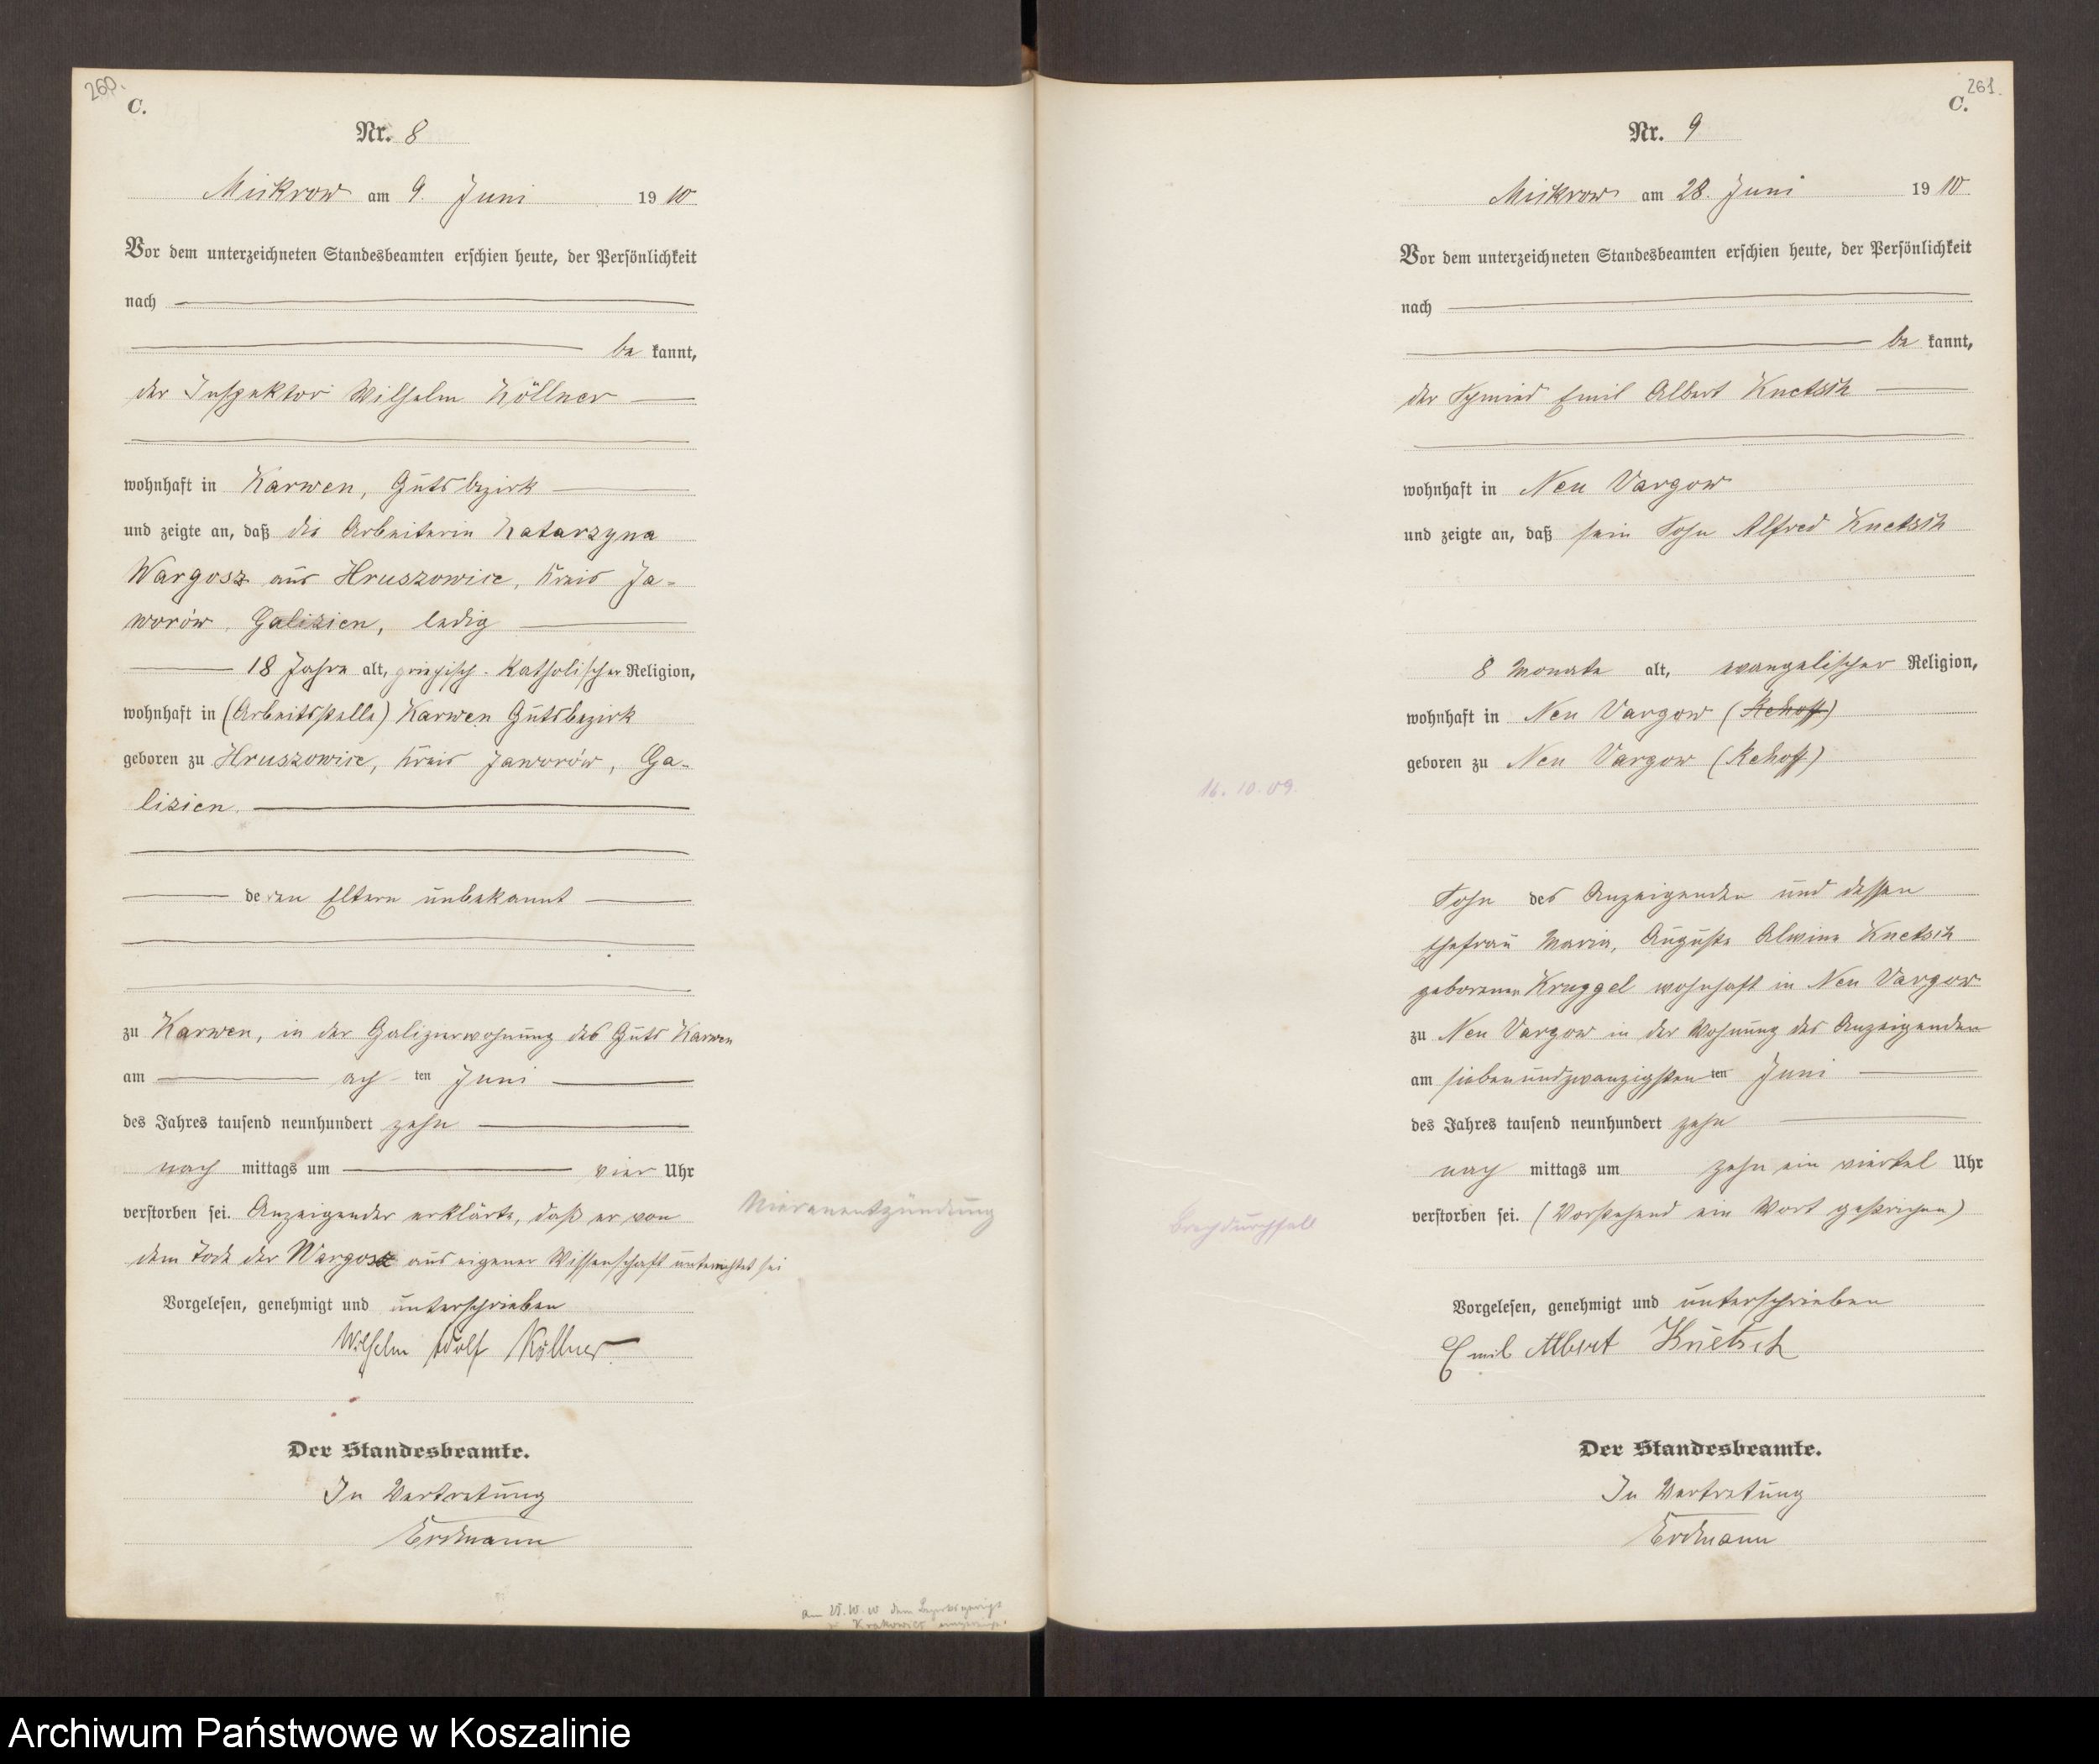 260.
C.
Nr. 8
Mickrow am 9. Juni 1910
Vor dem unterzeichneten Standesbeamten erschien heute, der Persönlichkeit
nach
be kannt,
der Inspektor Wilhelm Köllner
wohnhaft in Karwen, Gutsbezirk
und zeigte an, daß die Arbeiterin Katarzyna
Wargosz aus Hruszowice, Kreis Ja-
worów, Galizien, ledig
18 Jahre alt, griechisch-katholischer Religion,
wohnhaft in (Arbeitsstelle) Karwen Gutsbezirk
geboren zu Hruszowice, Kreis Jaworów, Ga-
lizien.
deren Eltern unbekannt
zu Karwen, in der Galizierwohnung des Guts Karwen
am ach ten Juni
des Jahres tausend neunhundert zehn
nach mittags um vier Uhr
verstorben sei. Anzeigender erklärte, daß er von
dem Tode der Wargosz aus eigener Wissenschaft unterrichtet sei
Nierenentzündung
Vorgelesen, genehmigt und unterschrieben
Wilhelm Adolf Köllner
Der Standesbeamte.
In Vertretung
Erdmann
am dem Bezirksgericht
Krakowiec
261.
C.
Nr. 9
Mickrow am 28. Juni 1910
Vor dem unterzeichneten Standesbeamten erschien heute, der Persönlichkeit
nach
be kannt,
der Schmied Emil Albert Knetsch
wohnhaft in Neu Vargow
und zeigte an, daß sein Sohn Alfred Knetsch
8 Monate alt, evangelischer Religion,
wohnhaft in Neu Vargow (Rehoff)
geboren zu Neu Vargow (Rehoff)
16.10.09.
Sohn des Anzeigenden und dessen
Ehefrau Maria, Auguste Alwine Knetsch
geborenen Kruggel wohnhaft in Neu Vargow
zu Neu Vargow in der Wohnung des Anzeigenden
am siebenundzwanzigsten ten Juni
des Jahres tausend neunhundert zehn
nach mittags um zehn ein viertel Uhr
verstorben sei. (Vorstehend ein Wort gestrichen)
Brechdurchfall
Vorgelesen, genehmigt und unterschrieben
Emil Albert Knetsch
Der Standesbeamte.
In Vertretung
Erdmann
Archiwum Państwowe w Koszalinie